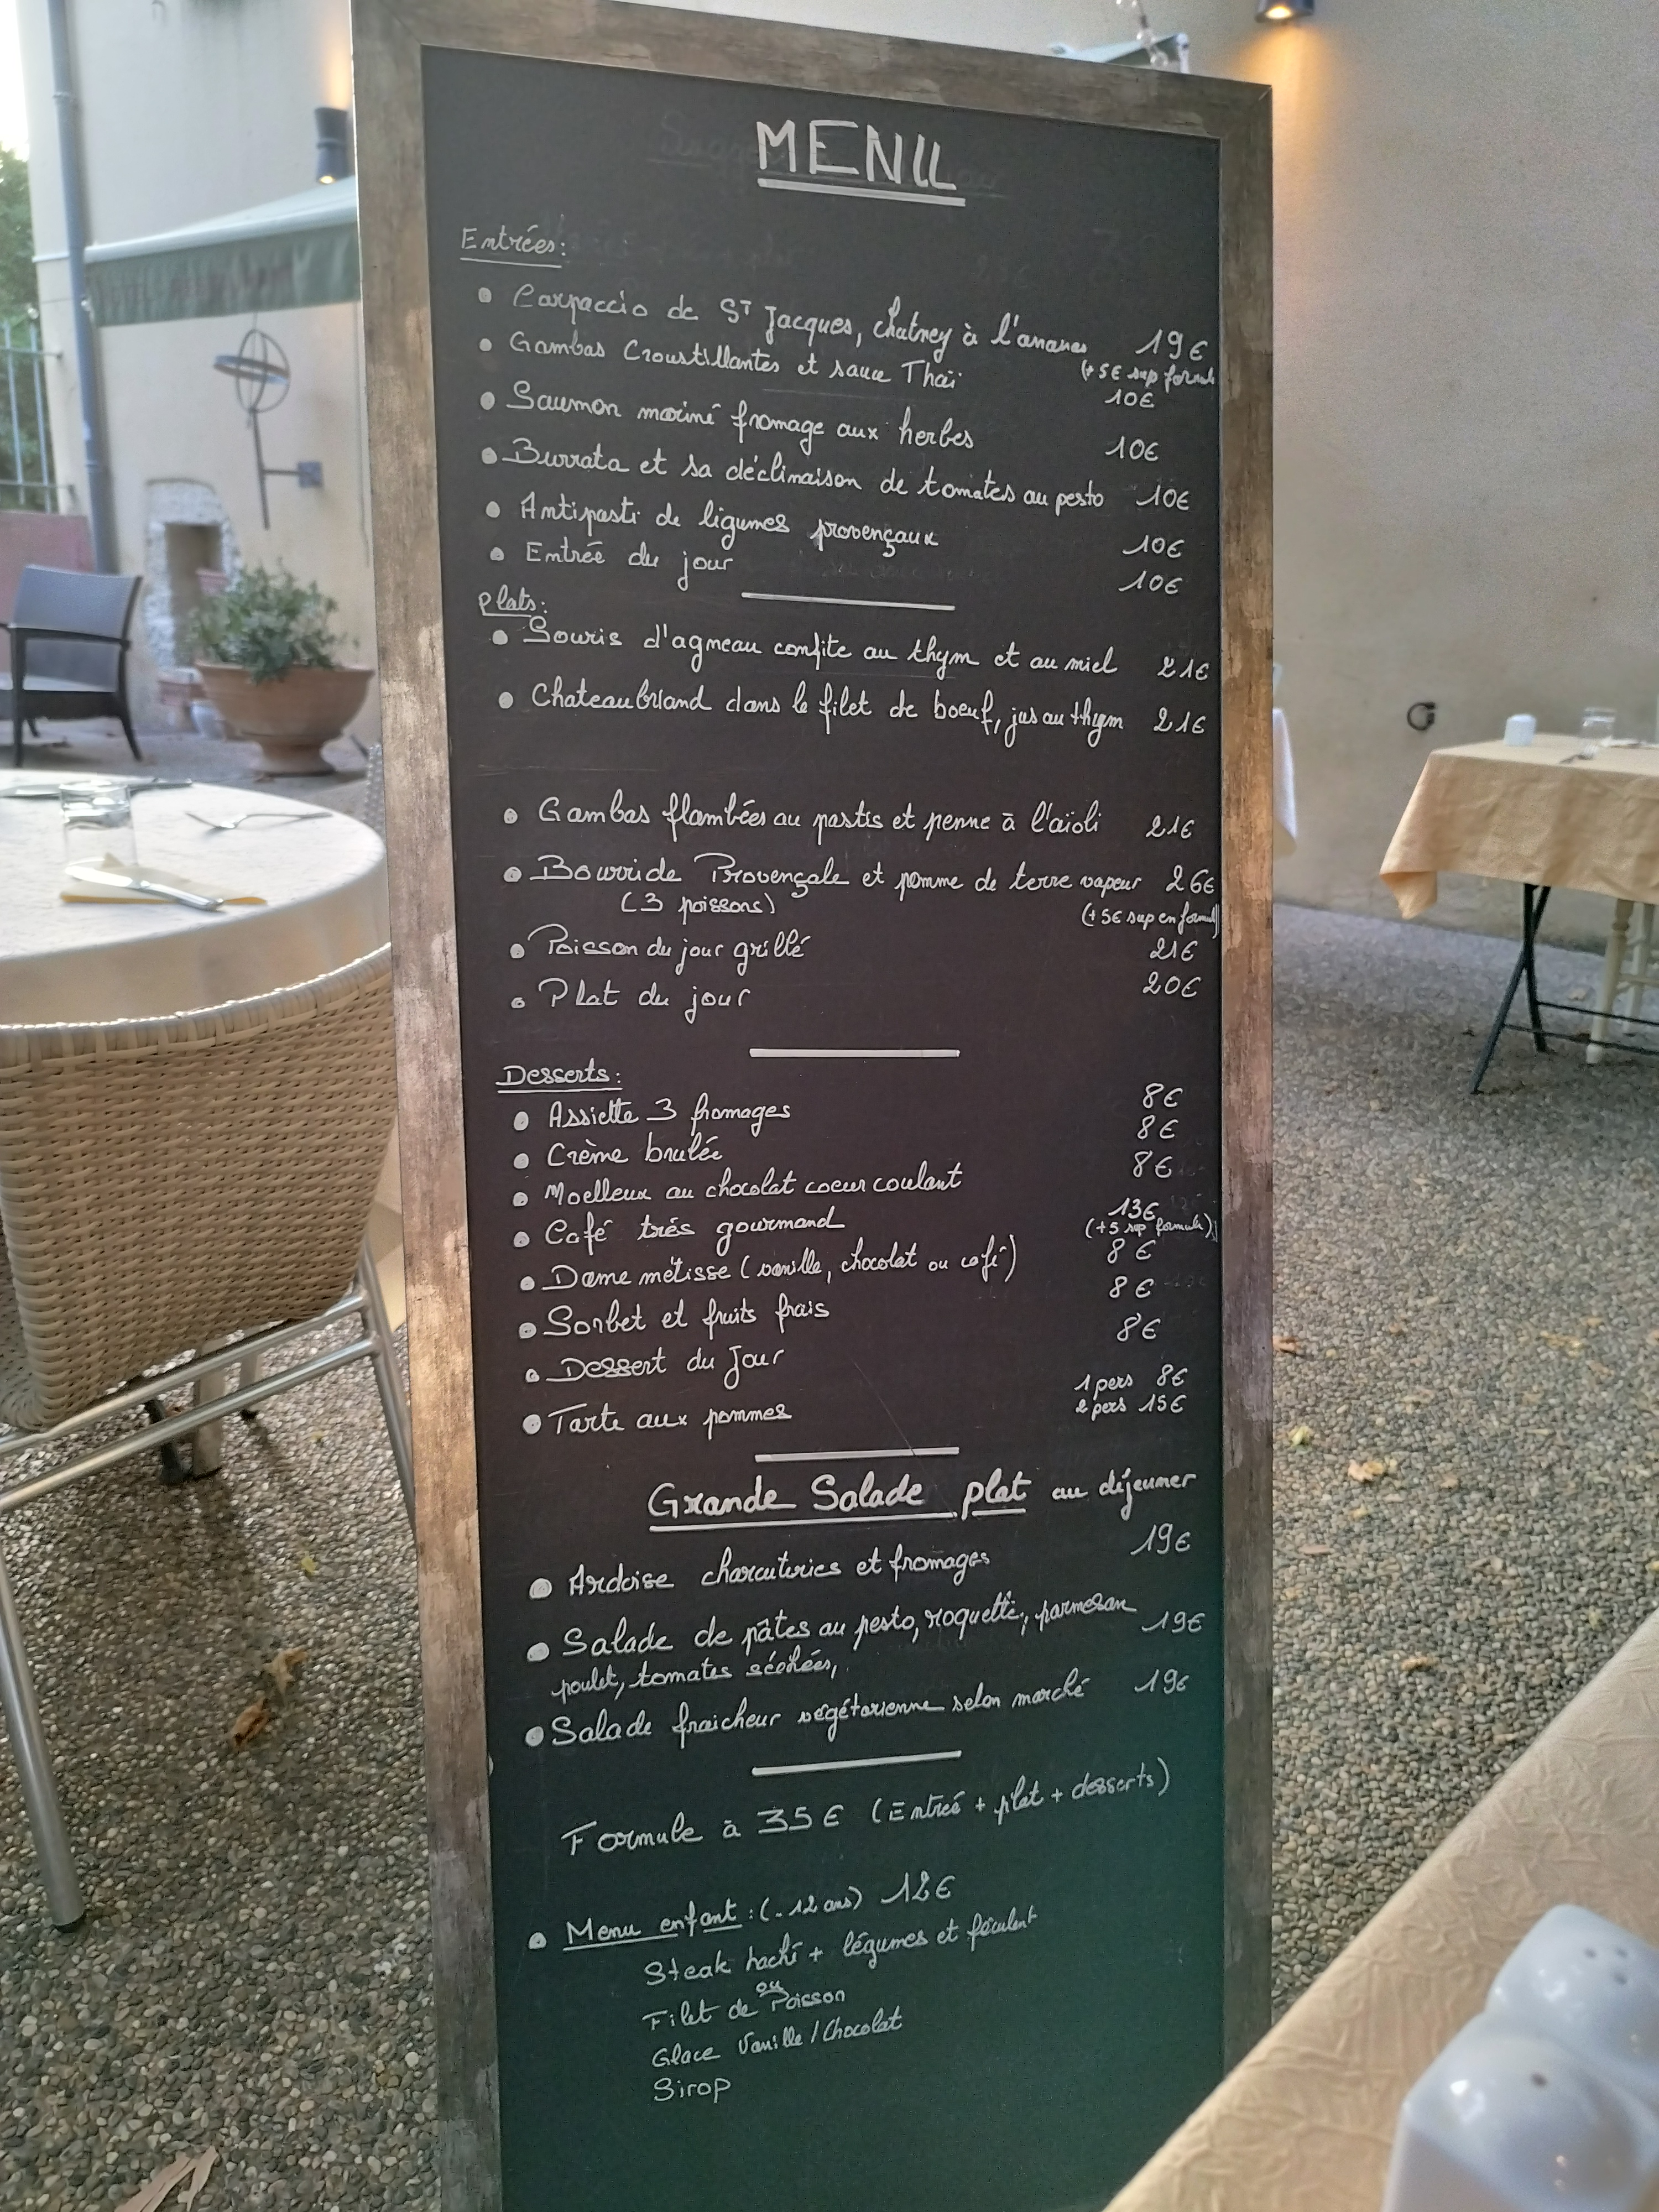 MENU
Entrées:
• Carpaccio de ST Jacques, chutney à l'ananas 19€
(+5€ sup formule
• Gambas Croustillantes et sauce Thaï 10€
• Saumon mariné fromage aux herbes 10€
• Burrata et sa déclinaison de tomates au pesto 10€
• Antipasti de légumes provençaux 10€
• Entrée du jour 10€
Plats:
• Souris d'agneau confite au thym et au miel 21€
• Chateaubriand dans le filet de boeuf, jus au thym 21€
• Gambas flambées au pastis et penne à l'aïoli 21€
• Bourride Provençale et pomme de terre vapeur 26€
(3 poissons) (+5€ sup en formule)
• Poisson du jour grillé 21€
• Plat du jour 20€
Desserts:
• Assiette 3 fromages 8€
• Crème brulée 8€
• Moelleux au chocolat coeur coulant 8€
• Café très gourmand 13€
(+5 sup formule)
• Dame métisse (vanille, chocolat ou café) 8€
• Sorbet et fruits frais 8€
• Dessert du Jour 8€
• Tarte aux pommes 1 pers 8€
2 pers 15€
Grande Salade plat au déjeuner
• Ardoise charcuteries et fromages 19€
• Salade de pâtes au pesto, roquette, parmesan 19€
poulet, tomates séchées,
• Salade fraicheur végétarienne selon marché 19€
Formule à 35€ (Entrée + plat + desserts)
• Menu enfant : (-12 ans) 12€
Steak haché + légumes et féculent
ou
Filet de Poisson
Glace Vanille / Chocolat
Sirop